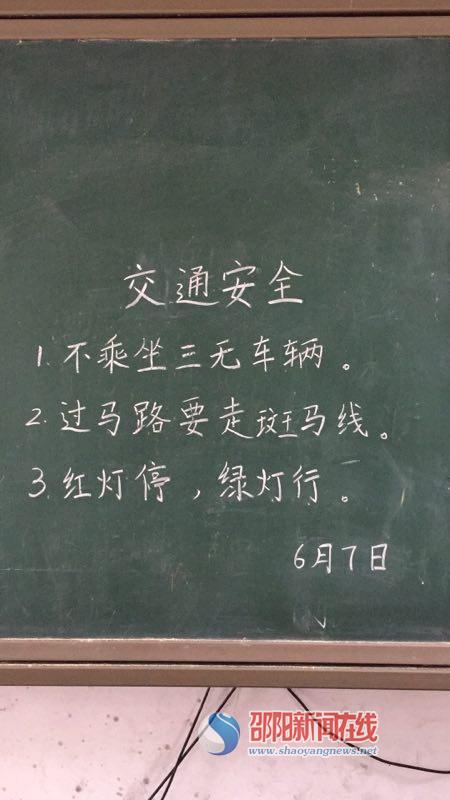 交通安全
1.不乘坐三无车辆。
2.过马路要走斑马线。
3.红灯停，绿灯行。
6月7日
邵阳新闻在线
www.shaoyangnews.net